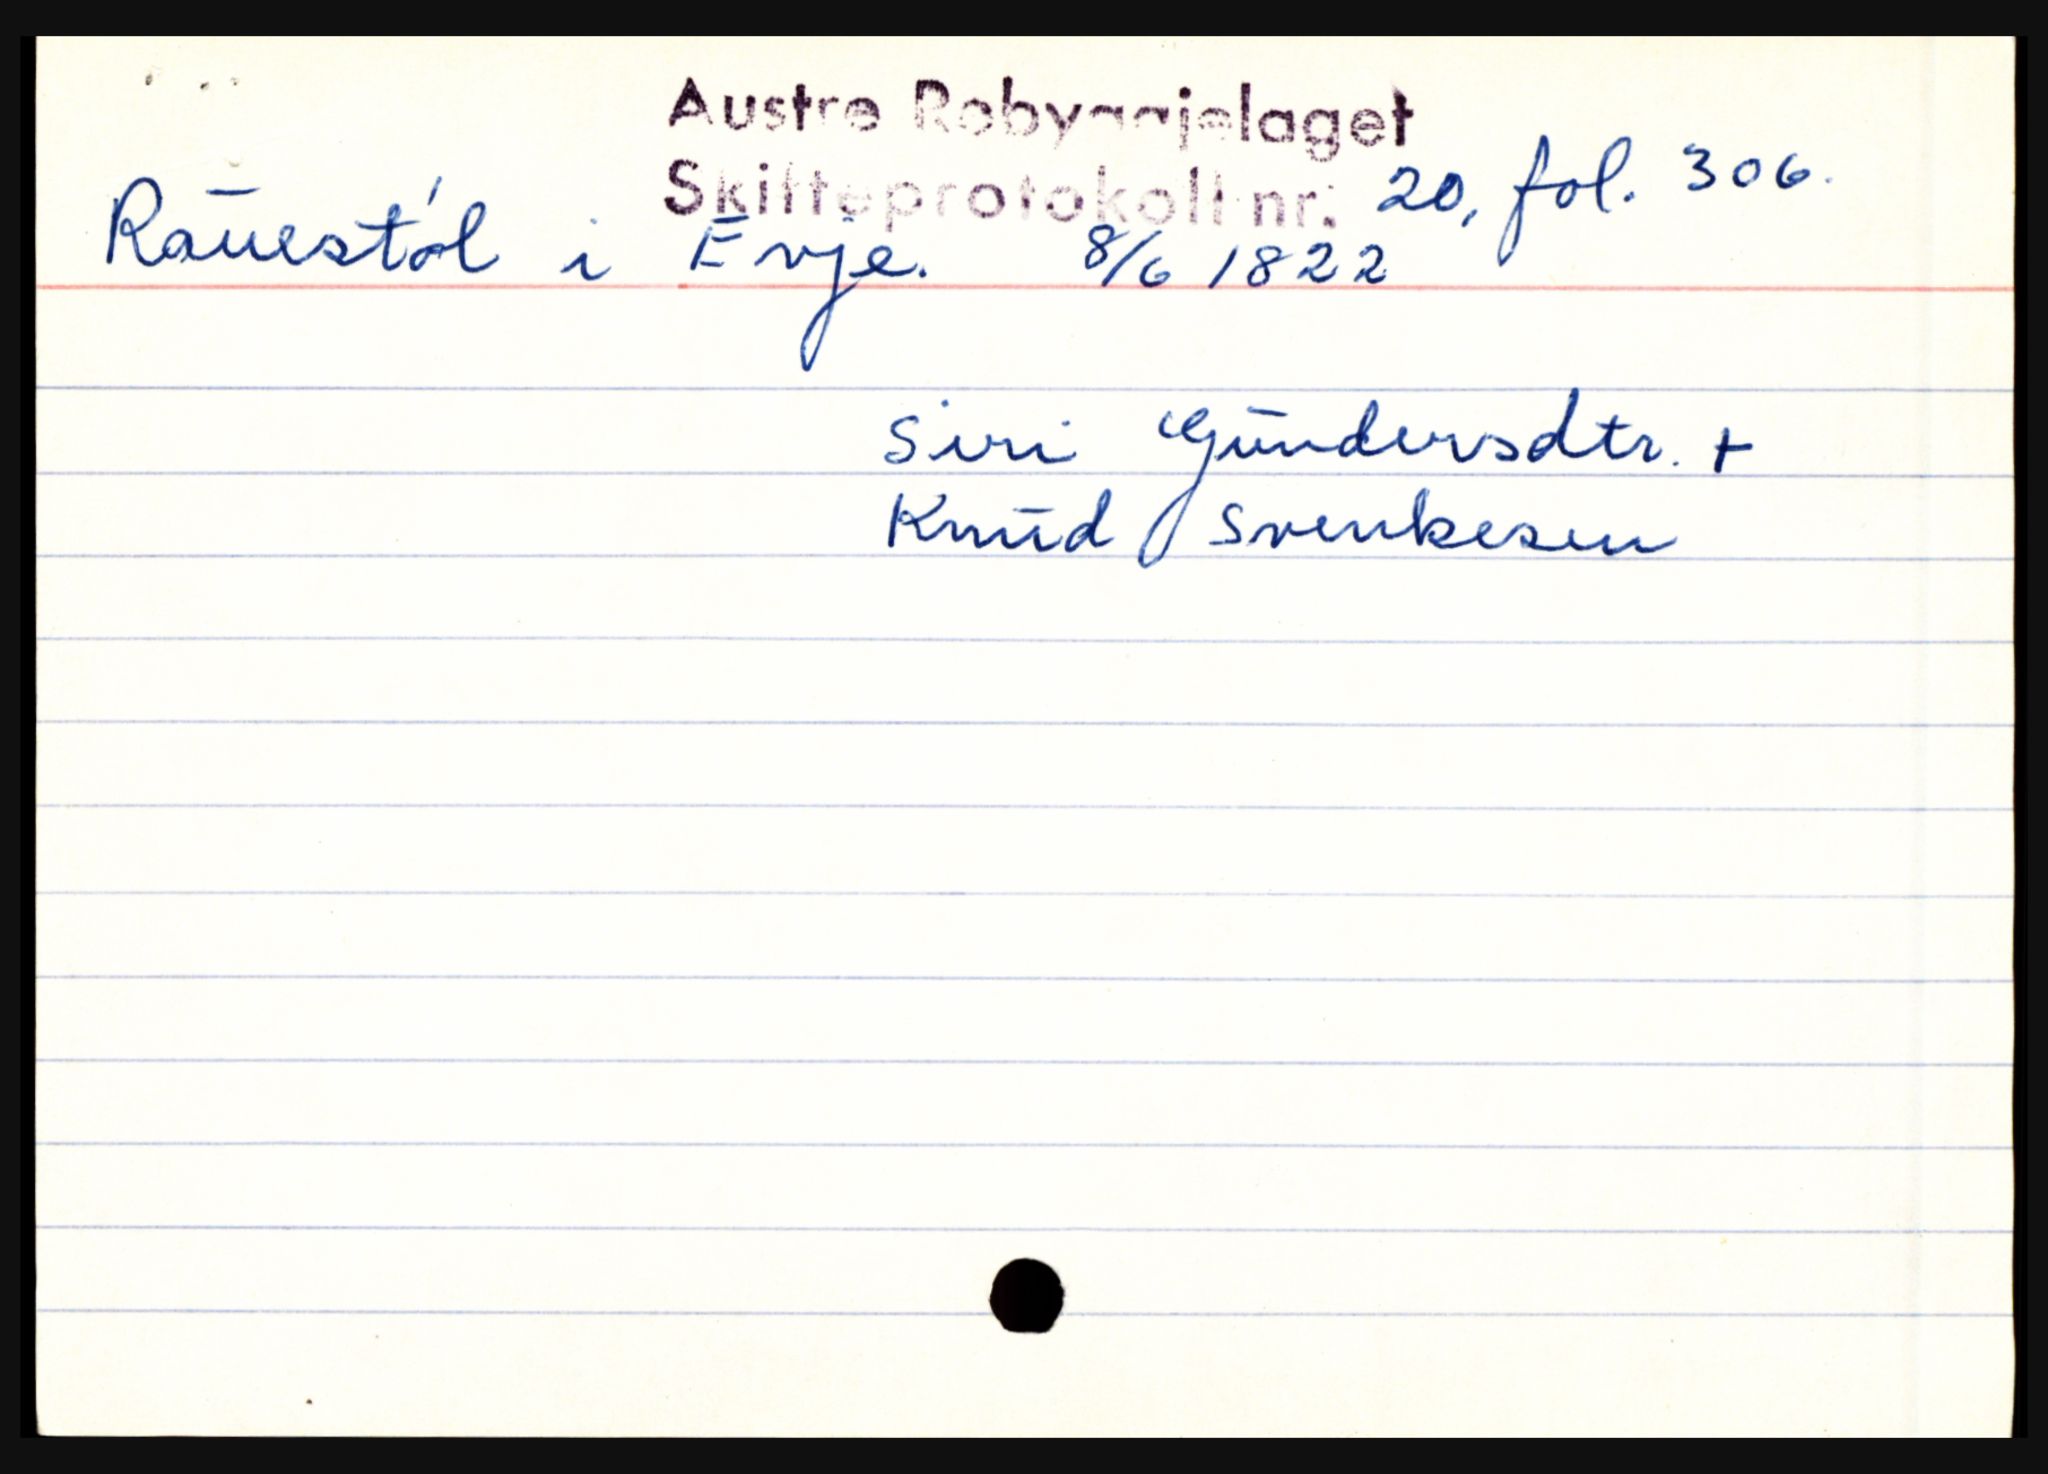 Austre Robyggjelaget
Skifteprotokoll nr. 20, fol. 306.
Rauestøl i Evje. 8/6 1822
Siri Gundersdtr. +
Knud Svenkesen